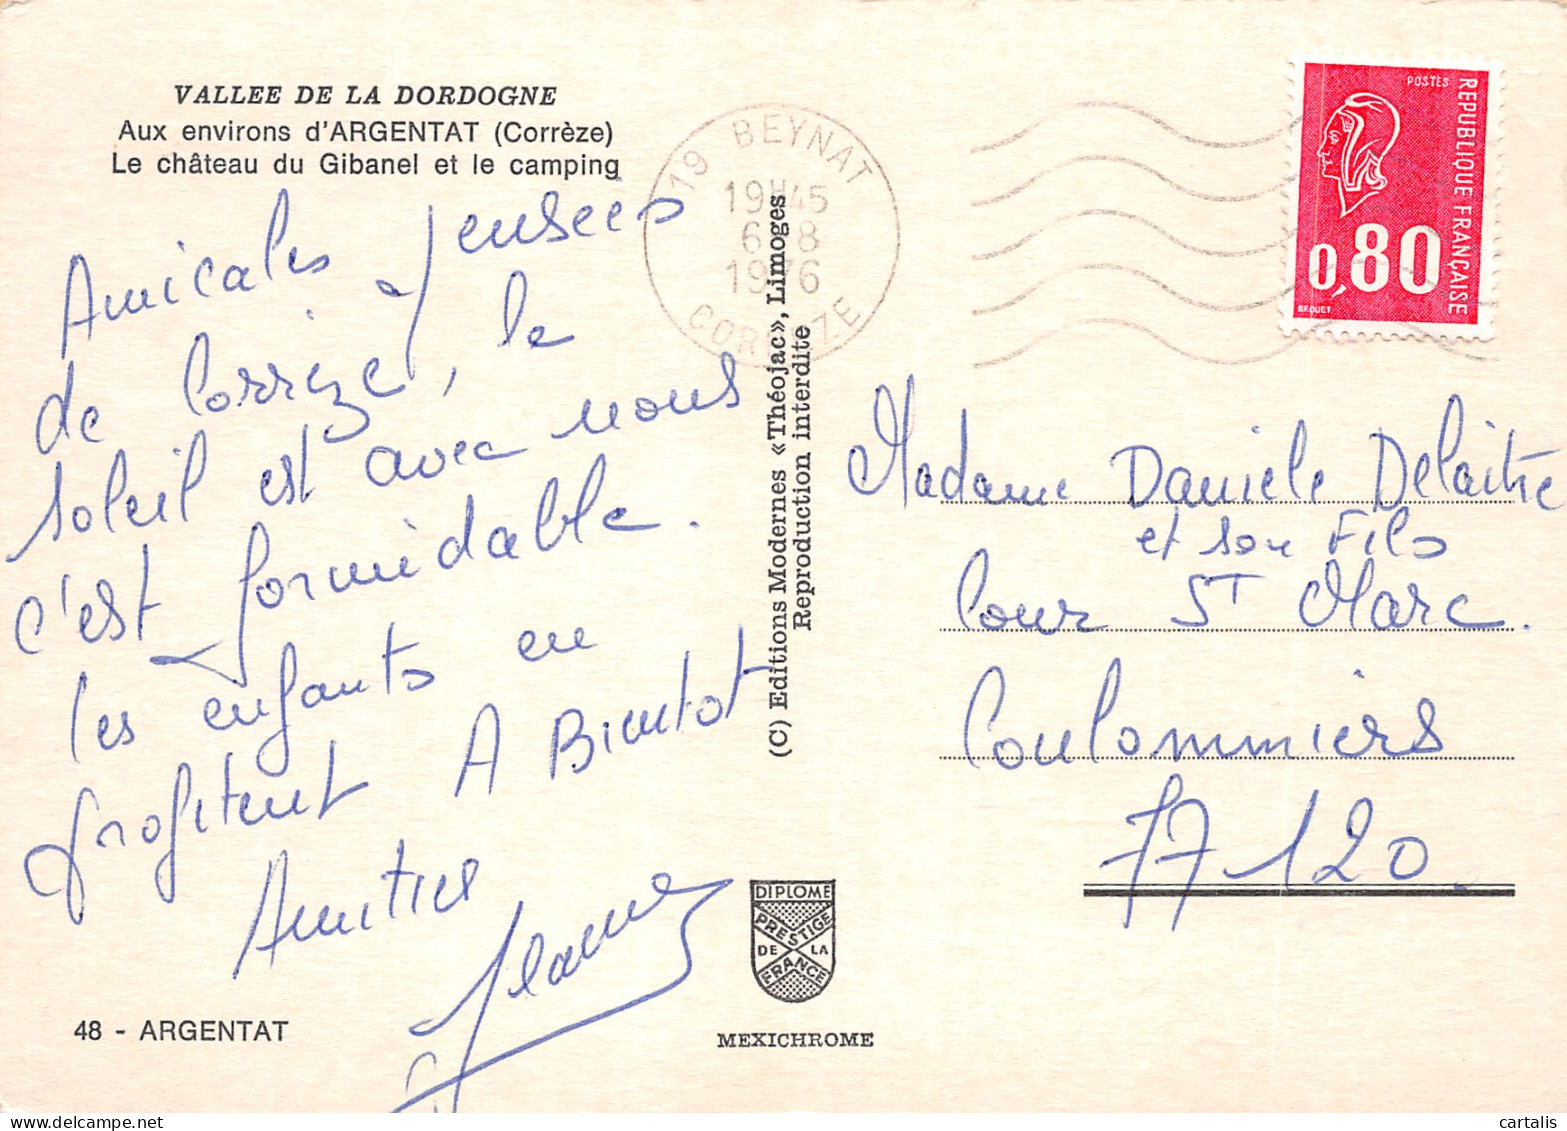 VALLEE DE LA DORDOGNE
Aux environs d'ARGENTAT (Corrèze)
Le château du Gibanel et le camping
Amicales pensées
de Corrèze, le
soleil est avec nous
c'est formidable.
les enfants en
profitent A Bientot
Amitiés
48 - ARGENTAT
19 BEYNAT
19H45
6 8
1976
CORREZE
(C) Editions Modernes «Théojac», Limoges
Reproduction interdite
DIPLOME
PRESTIGE
DE LA
FRANCE
MEXICHROME
POSTES
REPUBLIQUE FRANÇAISE
0,80
BEQUET
Madame Danièle Delaitre
et son Fils
Cour ST Marc.
Coulommiers
77120.
cartalis